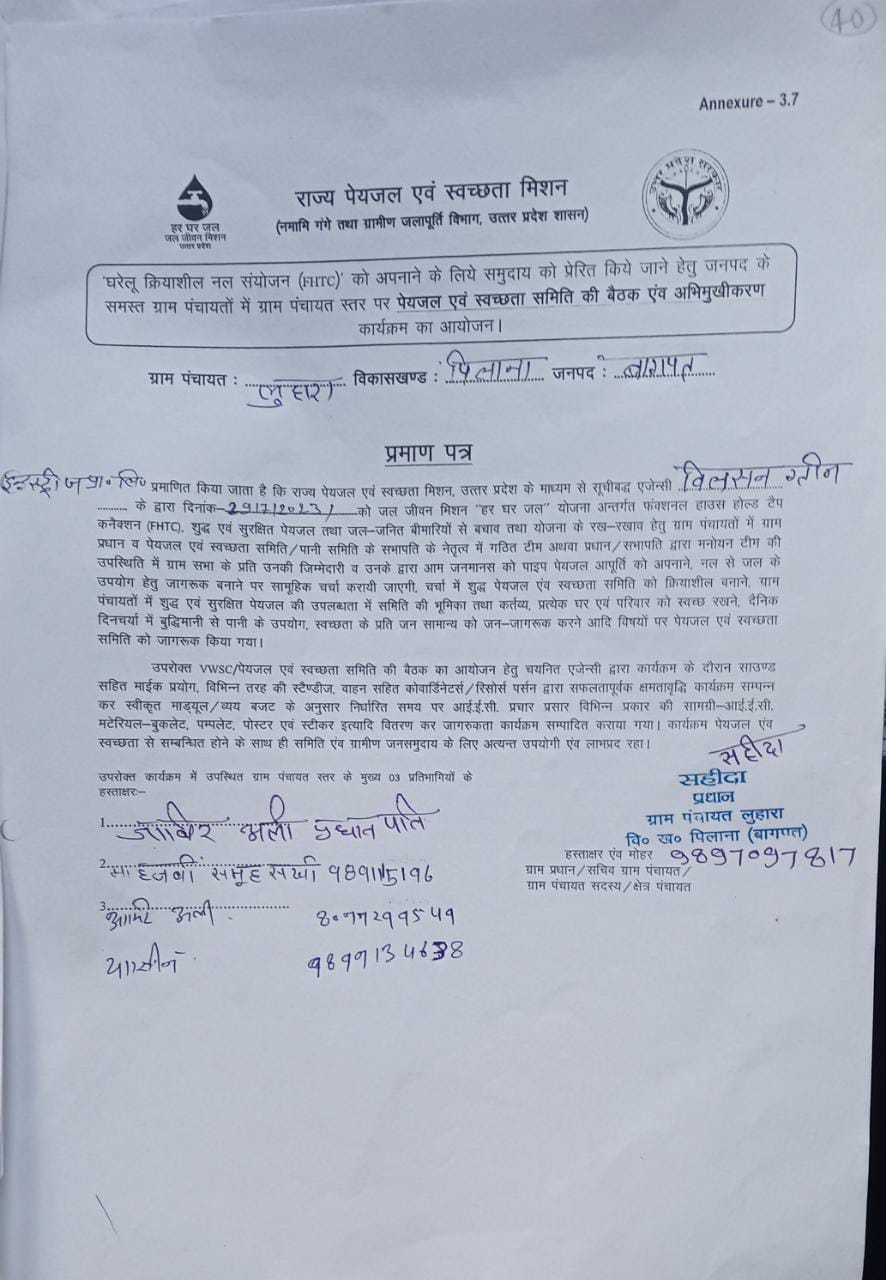 40
Annexure – 3.7
हर घर जल
जल जीवन मिशन
उत्तर प्रदेश
राज्य पेयजल एवं स्वच्छता मिशन
(नमामि गंगे तथा ग्रामीण जलापूर्ति विभाग, उत्तर प्रदेश शासन)
उत्तर प्रदेश सरकार
'घरेलू क्रियाशील नल संयोजन (FHTC)' को अपनाने के लिये समुदाय को प्रेरित किये जाने हेतु जनपद के
समस्त ग्राम पंचायतों में ग्राम पंचायत स्तर पर पेयजल एवं स्वच्छता समिति की बैठक एंव अभिमुखीकरण
कार्यक्रम का आयोजन।
ग्राम पंचायत : लुहारा विकासखण्ड : पिलाना जनपद : बागपत
प्रमाण पत्र
इन्डस्ट्रीज प्रा० लि० प्रमाणित किया जाता है कि राज्य पेयजल एवं स्वच्छता मिशन, उत्तर प्रदेश के माध्यम से सूचीबद्ध एजेन्सी विलसन ग्रीन
............ के द्वारा दिनांक–29/7/2023/......को जल जीवन मिशन "हर घर जल" योजना अन्तर्गत फंक्शनल हाउस होल्ड टैप
कनैक्शन (FHTC), शुद्ध एवं सुरक्षित पेयजल तथा जल-जनित बीमारियों से बचाव तथा योजना के रख-रखाव हेतु ग्राम पंचायतों में ग्राम
प्रधान व पेयजल एवं स्वच्छता समिति/पानी समिति के सभापति के नेतृत्व में गठित टीम अथवा प्रधान/सभापति द्वारा मनोयन टीम की
उपस्थिति में ग्राम सभा के प्रति उनकी जिम्मेदारी व उनके द्वारा आम जनमानस को पाइप पेयजल आपूर्ति को अपनाने, नल से जल के
उपयोग हेतु जागरूक बनाने पर सामूहिक चर्चा करायी जाएगी, चर्चा में शुद्ध पेयजल एंव स्वच्छता समिति को क्रियाशील बनाने, ग्राम
पंचायतों में शुद्ध एवं सुरक्षित पेयजल की उपलब्धता में समिति की भूमिका तथा कर्तव्य, प्रत्येक घर एवं परिवार को स्वच्छ रखने, दैनिक
दिनचर्या में बुद्धिमानी से पानी के उपयोग, स्वच्छता के प्रति जन सामान्य को जन–जागरूक करने आदि विषयों पर पेयजल एवं स्वच्छता
समिति को जागरूक किया गया।
उपरोक्त VWSC/पेयजल एवं स्वच्छता समिति की बैठक का आयोजन हेतु चयनित एजेन्सी द्वारा कार्यक्रम के दौरान साउण्ड
सहित माईक प्रयोग, विभिन्न तरह की स्टैण्डीज, वाहन सहित कोवार्डिनेटर्स/रिसोर्स पर्सन द्वारा सफलतापूर्वक क्षमतावृद्धि कार्यक्रम सम्पन्न
कर स्वीकृत माड्यूल/व्यय बजट के अनुसार निर्धारित समय पर आई.ई.सी. प्रचार प्रसार विभिन्न प्रकार की सामग्री–आई.ई.सी.
मटेरियल–बुकलेट, पम्पलेट, पोस्टर एवं स्टीकर इत्यादि वितरण कर जागरुकता कार्यक्रम सम्पादित कराया गया। कार्यक्रम पेयजल एंव
स्वच्छता से सम्बन्धित होने के साथ ही समिति एंव ग्रामीण जनसमुदाय के लिए अत्यन्त उपयोगी एंव लाभप्रद रहा।
सहीदा
सहीदा
प्रधान
ग्राम पंचायत लुहारा
वि० ख० पिलाना (बागपत)
हस्ताक्षर एंव मोहर 9897097817
ग्राम प्रधान/सचिव ग्राम पंचायत/
ग्राम पंचायत सदस्य/क्षेत्र पंचायत
उपरोक्त कार्यक्रम में उपस्थित ग्राम पंचायत स्तर के मुख्य 03 प्रतिभागियों के
हस्ताक्षरः–
1. जाबिर अली प्रधान पति
2. माहजबी समूह सखी
3. अली
यासीन